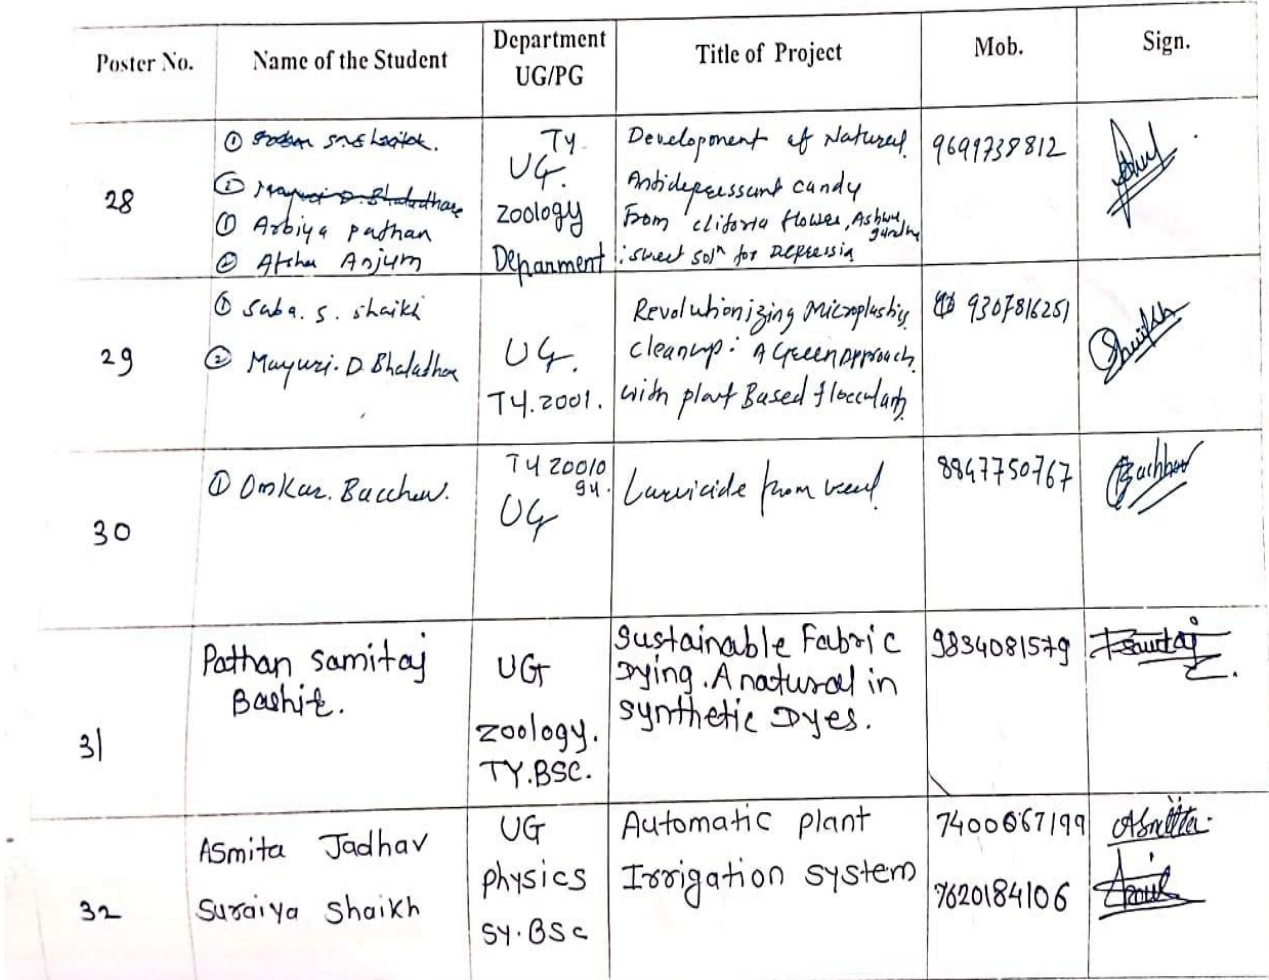 Poster No. Name of the Student Department UG/PG Title of Project Mob. Sign.
28
① Shaikh.
② Mayuri D. Bhaladhare
① Arbiya pathan
② Afsha Anjum
TY
UG.
zoology
Depanment
Development of Natural
Antidepressant candy
From clitoria flower, Ashwa
gandha
: sweet solⁿ for Depressia
9699738812
29
① Saba. S. Shaikh
② Mayuri. D Bhaladhare
UG.
TY.Zool.
Revolutionizing Microplastics
cleanup: A Green Approach
with plant Based flocculants
9307816251
Shaikh
30
① Omkar. Bacchav.
TY Zoolo
gy.
UG
Larvicide from weed
8847750767
Bachhav
31
Pathan Samitaj
Bashir.
UG
zoology.
TY.BSC.
Sustainable Fabric
Dying. A natural in
synthetic Dyes.
9834081579
32
Asmita Jadhav
Suraiya Shaikh
UG
physics
SY.BSc
Automatic plant
Irrigation system
7400667199
7620184106
Asmita